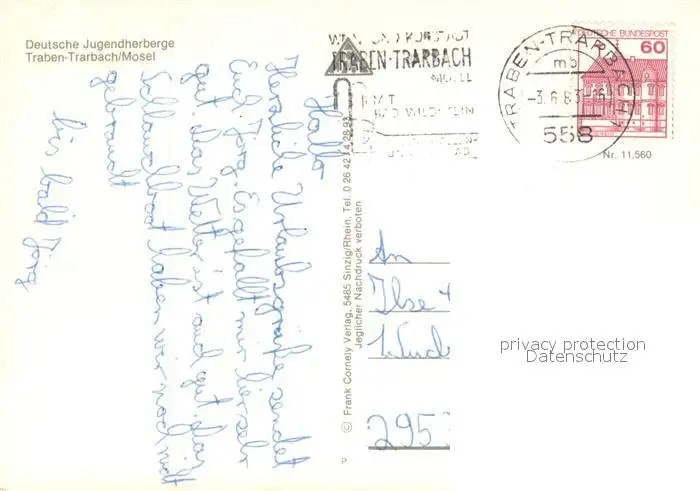 Deutsche Jugendherberge
Traben-Trarbach/Mosel
WEIN- UND KURSTADT
TRABEN-TRARBACH
MOSEL
MIT
BAD WILDSTEIN
TRABEN-TRARBACH
mb
-3.6.83
558
DEUTSCHE BUNDESPOST
60
Nr. 11.560
Hallo
Herzliche Urlaubsgrüße sendet
Euch Jörg. Es gefällt mir hier sehr
gut. Das Wetter ist auch gut. Das
Schlauchboot haben wir noch nicht
gebraucht
bis bald Jörg
© Frank Cornely Verlag, 5485 Sinzig/Rhein, Tel. 0 26 42 / 4 28 93
Jeglicher Nachdruck verboten
P
An
Ilse +
295
privacy protection
Datenschutz